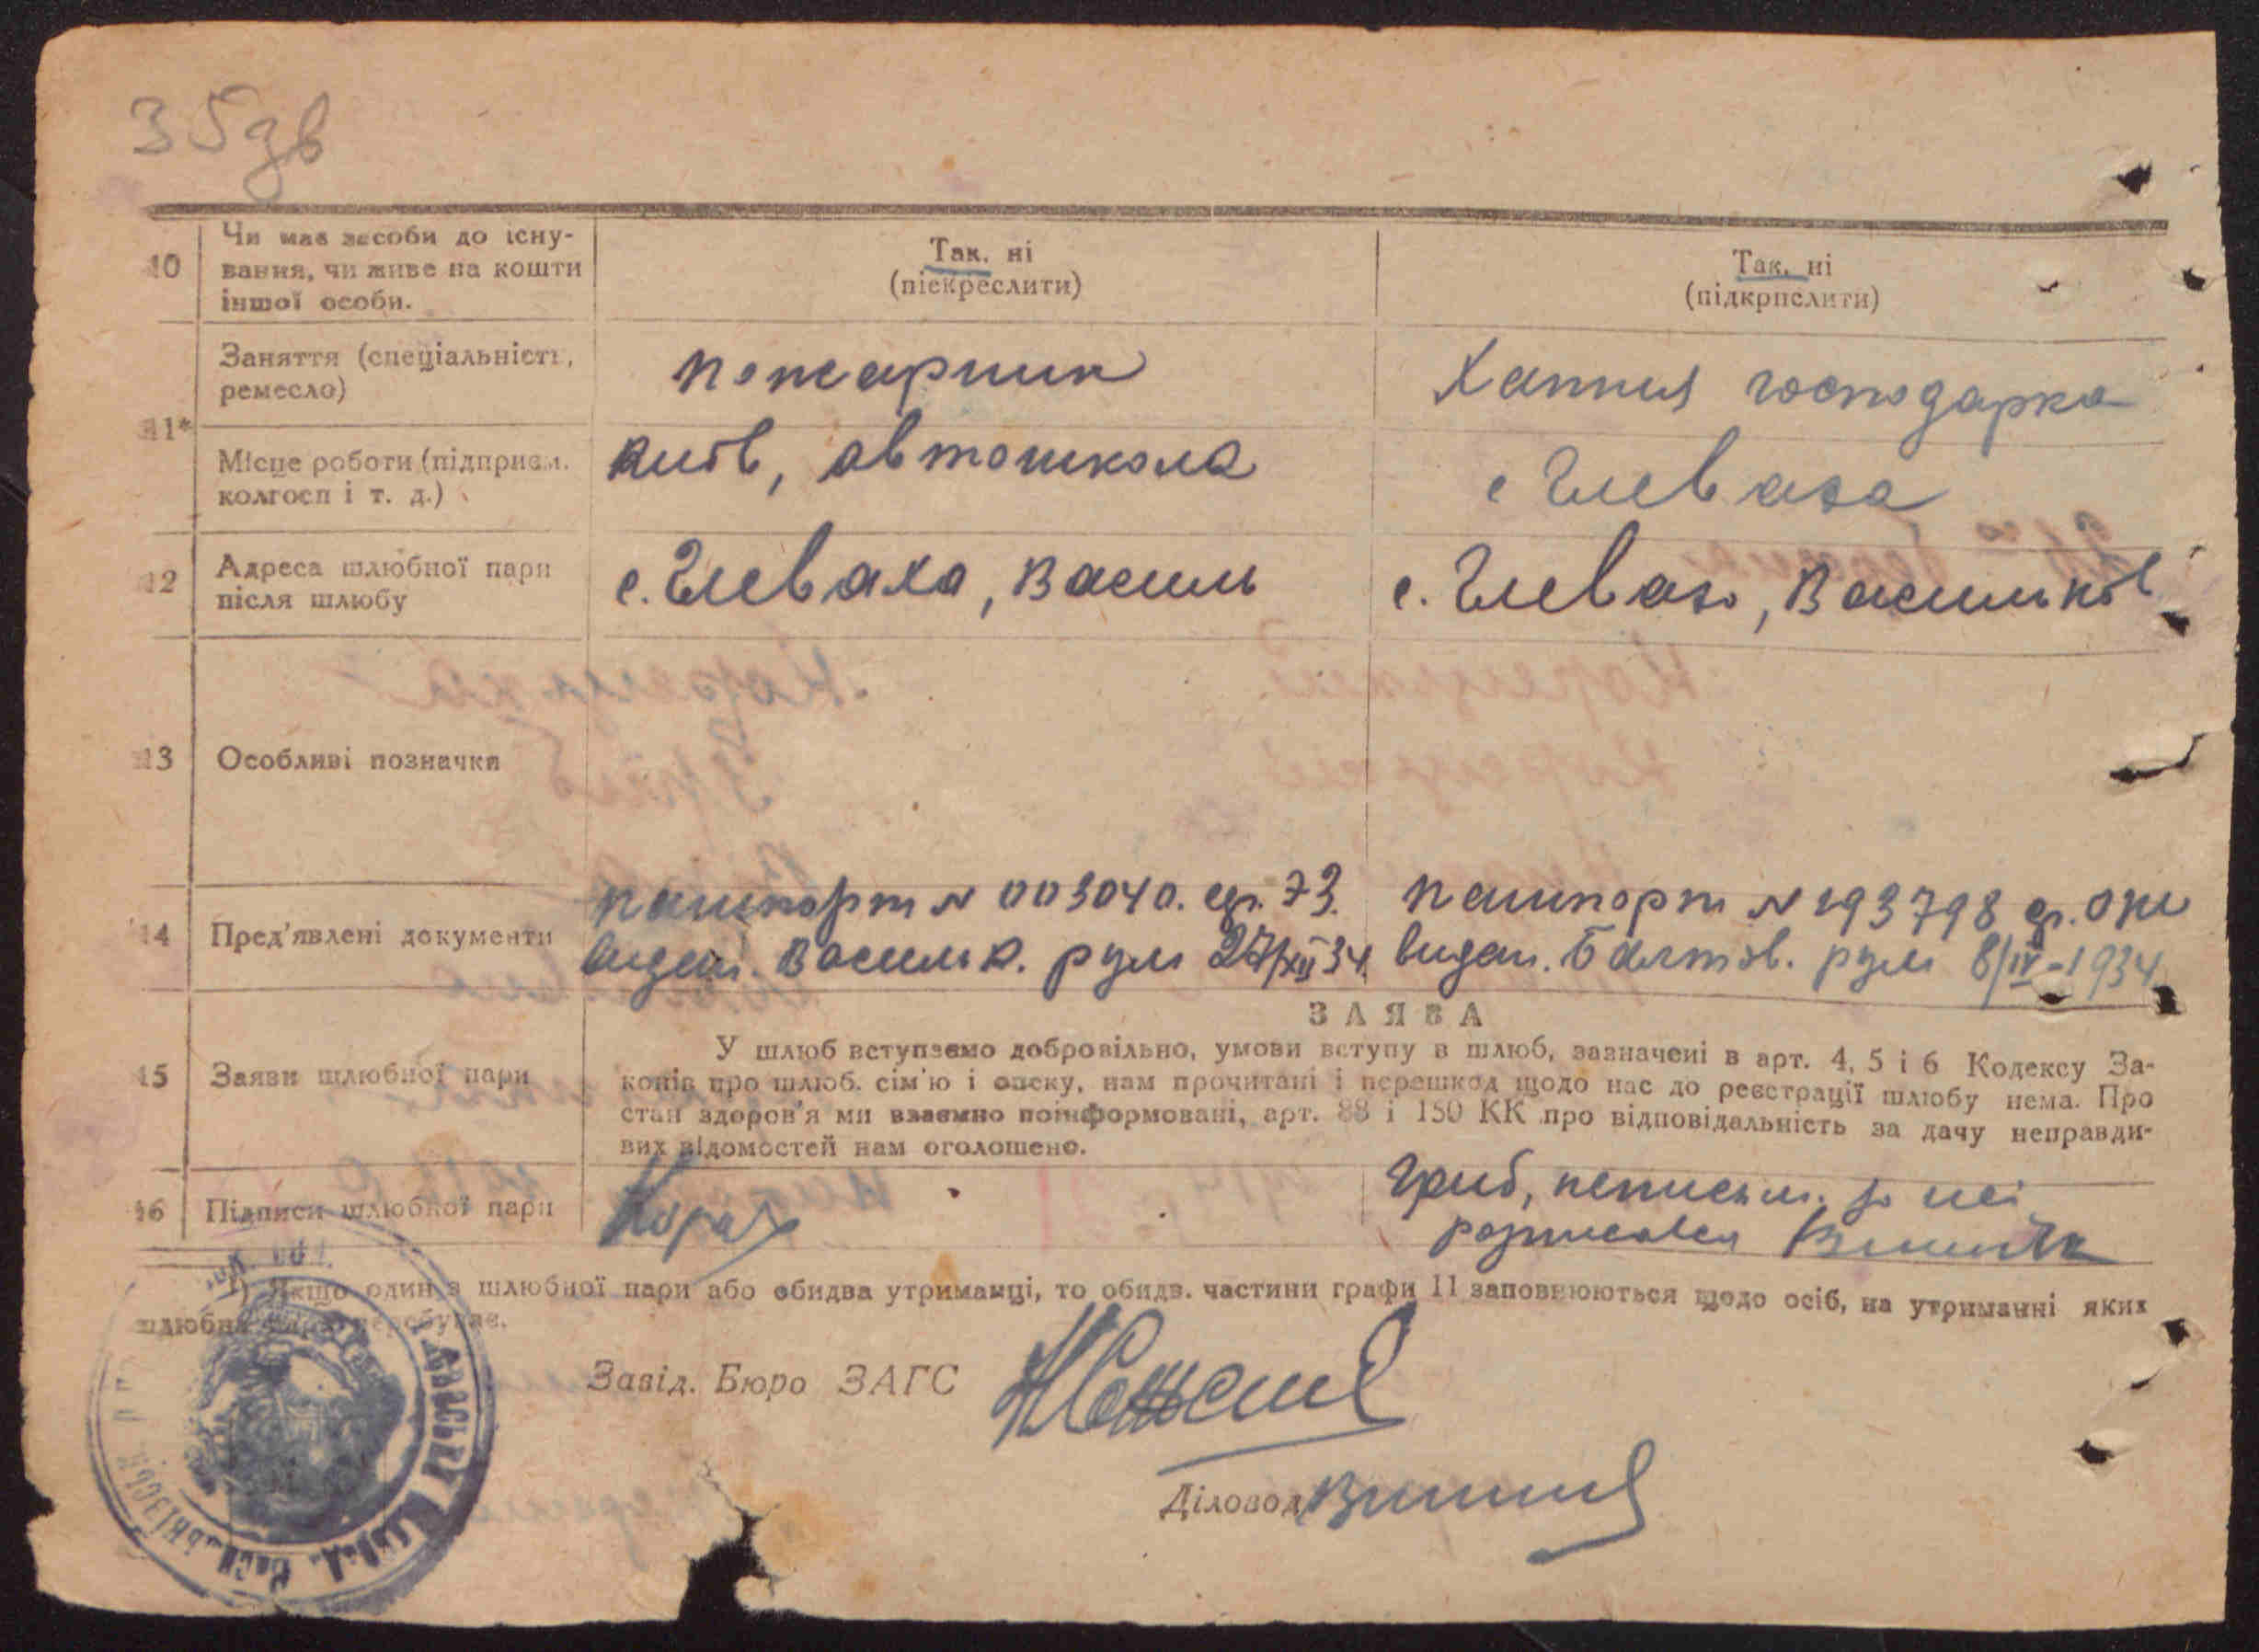 35зв
10 Чи має засоби до існу-
вання, чи живе на кошти
іншої особи.
Так, ні
(піскреслити)
Так, ні
(підкрислити)
11*
Заняття (спеціальність,
ремесло)
пожарник
Хатня господарка
Місце роботи (підприєм.
колгосп і т. д.)
Київ, автошкола
с Глеваха
12 Адреса шлюбної пари
після шлюбу
с. Глеваха, Василь
с. Глеваха, Васильків
13 Особливі позначки
14 Пред'явлені документи
пашпорт N 003040. ср. 73.
видан. Васильк. рум 27/XII 34
пашпорт N 193798 ср.
видан. Балтов. рум 8/IV-1934
15 Заяви шлюбної пари
ЗАЯВА
У шлюб вступаємо добровільно, умови вступу в шлюб, зазначені в арт. 4, 5 і 6 Кодексу За-
конів про шлюб. сім'ю і опеку, нам прочитані і перешкод щодо нас до реєстрації шлюбу нема. Про
стан здоров'я ми взаємно поінформовані, арт. 88 і 150 КК про відповідальність за дачу неправди-
вих відомостей нам оголошено.
16 Підписи шлюбної пари
Гриб, неписьм. за неї
розписався
1) Якщо один з шлюбної пари або обидва утриманці, то обидв. частини графи 11 заповнюються щодо осіб, на утриманні яких
шлюбна пара перебуває.
Завід. Бюро ЗАГС
Діловод